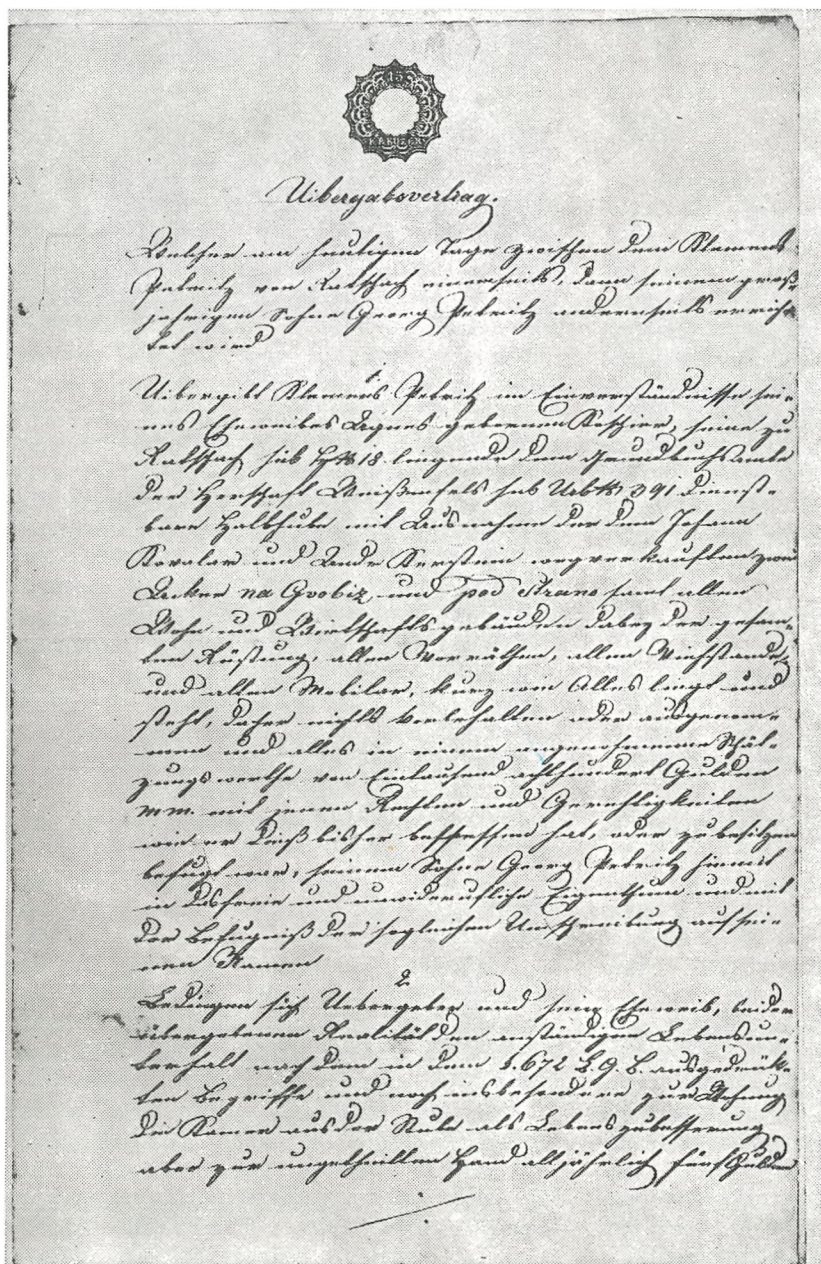 15
KREUZER
Uibergabsvertrag.
Welcher am heutigen Tage zwischen dem Klemens
Petritz von Ratschach einerseits, dann seinem groß-
jährigen Sohne Georg Petritz anderseits errich-
tet wird
1.
Uibergibt Klemens Petritz im Einverständnisse sei-
nes Eheweibes Agnes gebornen seine zu
Ratschach sub 18 liegende dem Grundbuchsamte
der Herschaft Weißenfels sub Urb No 391 dienst-
bare Halbhube mit Ausnahme der dem Johann
und wegverkauften zwei
Aecker na und pod strano samt allen
Wohn und Wirthschaftsgebäuden dabey der gesam-
ten Rüstung, allen Vorräthen, allen Viehstande,
und allen Mobilar, kurz wie Alles liegt und
steht, daher nichts vorbehalten oder ausgenom-
men und alles in einem angenommene Schät-
zungswerthe von Eintausend achthundert Gulden
mm. mit jenen Rechten und Gerechtigkeiten
wie er bisher hat, oder zu besitzen
befugt war, seinem Sohne Georg Petritz hiemit
in und unwiderufliche Eigenthum und mit
der Befugniß der sogleichen Umschreibung auf sei-
nen Namen
2
Bedingen sich Uebergeber und sein Eheweib, bei der
übergebenen Realität den anständigen Lebensun-
terhalt nach dem in dem §. 672 b. G. B. ausgedrük-
ten Begriffe und noch insbesondere zur Wohnung
die Kamer aus der Stube als Lebenszubesserung
aber zur ungetheilten Hand alljährlich fünf Gulden